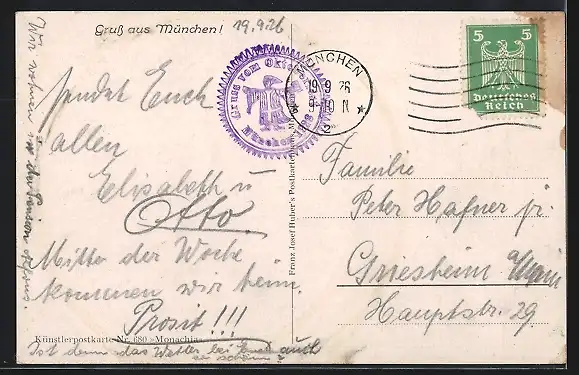 Gruß aus München!
19.9.26
sendet Euch
allen
Elisabeth u
Otto.
Mitte der Woche
kommen wir heim.
Prosit!!!
Künstlerpostkarte Nr. 680 »Monachia«
Ist denn das Wetter bei Euch auch
so schön?
Wir wohnen in der Pension
Gruss vom Oktoberfest
München
MÜNCHEN
19 9 26
9-10 N
* 2 *
5 5
Deutsches
Reich
Franz Josef Huber's Postkartenhaus, München
Familie
Peter Hafner jr.
Griesheim a/Main
Hauptstr. 29